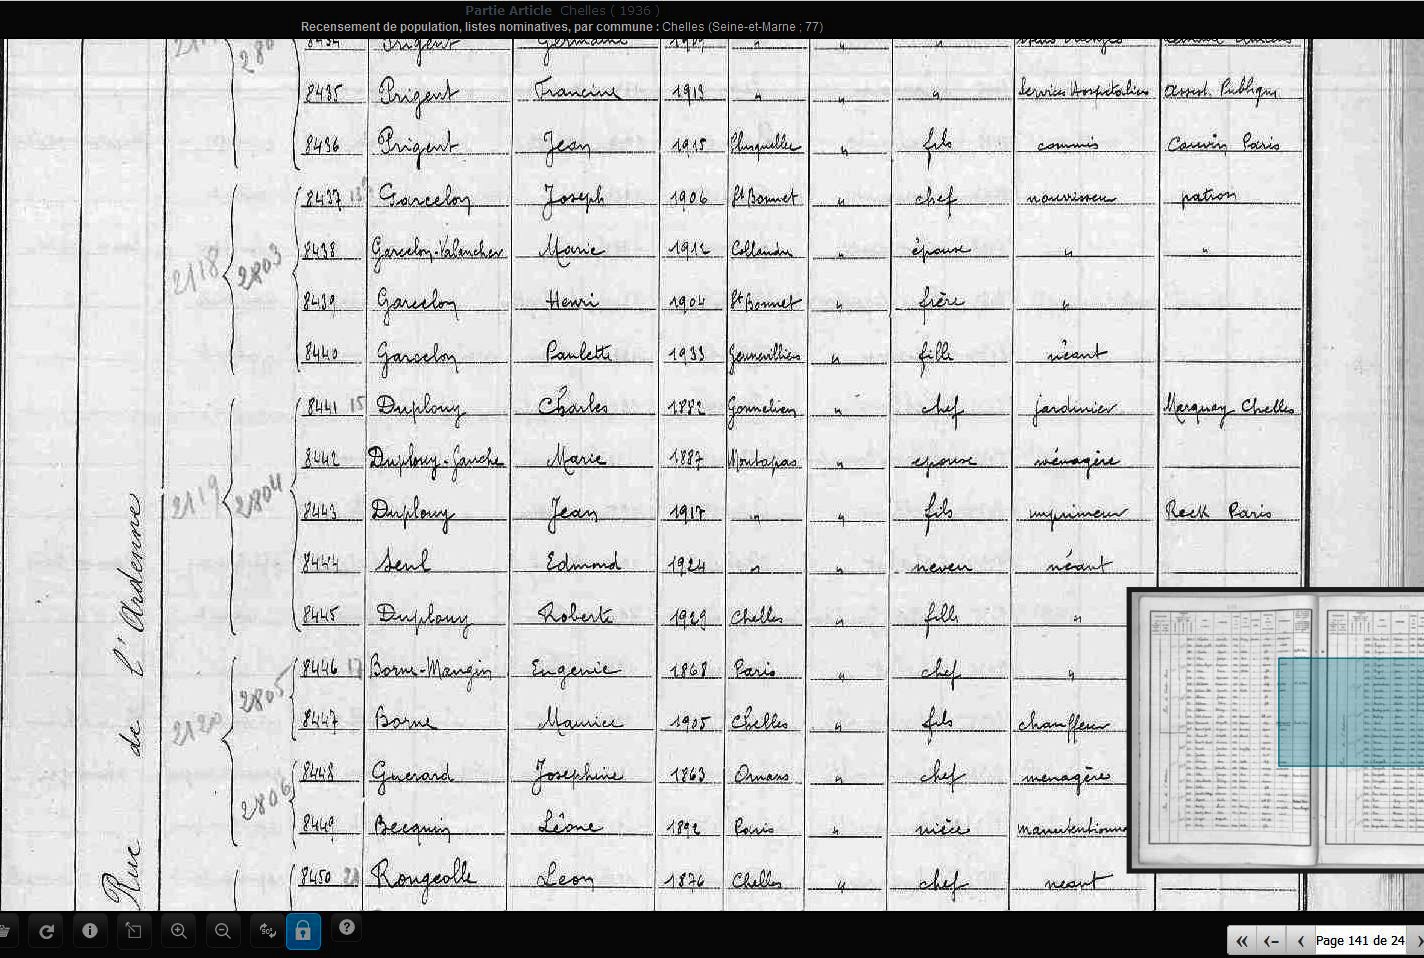 Partie Article Chelles ( 1936 )
Recensement de population, listes nominatives, par commune : Chelles (Seine-et-Marne ; 77)
8434 Prigent Germaine 1909 " " "
8435 Prigent Francine 1913 " " " Services Hospitaliers Assist. Publique
8436 Prigent Jean 1915 Plusquellec " fils commis Cauvin Paris
8437 13 Garcelon Joseph 1906 St Bonnet " chef nourrisseur patron
2118 2803
8438 Garcelon-Valancher Marie 1912 Collandre " épouse " "
8439 Garcelon Henri 1904 St Bonnet " frère "
8440 Garcelon Paulette 1933 Gennevilliers " fille néant
8441 15 Duplouy Charles 1882 Gonnelieu " chef jardinier Marquay Chelles
8442 Duplouy-Gauche Marie 1887 Montapas " epouse ménagère
2119 2804
8443 Duplouy Jean 1917 " " fils imprimeur Reck Paris
8444 Seul Edmond 1924 " " neveu néant
8445 Duplouy Roberte 1929 Chelles " fille "
8446 17 Borne-Mangin Eugenie 1868 Paris " chef "
2120 2805
8447 Borne Maurice 1905 Chelles " fils chauffeur
8448 Guerard Josephine 1863 Ornans " chef menagère
2806
8449 Becquin Léone 1892 Paris " nièce manutentionn
8450 21 Rongeolle Leon 1876 Chelles " chef neant
Rue de l'Ardenne
Page 141 de 24